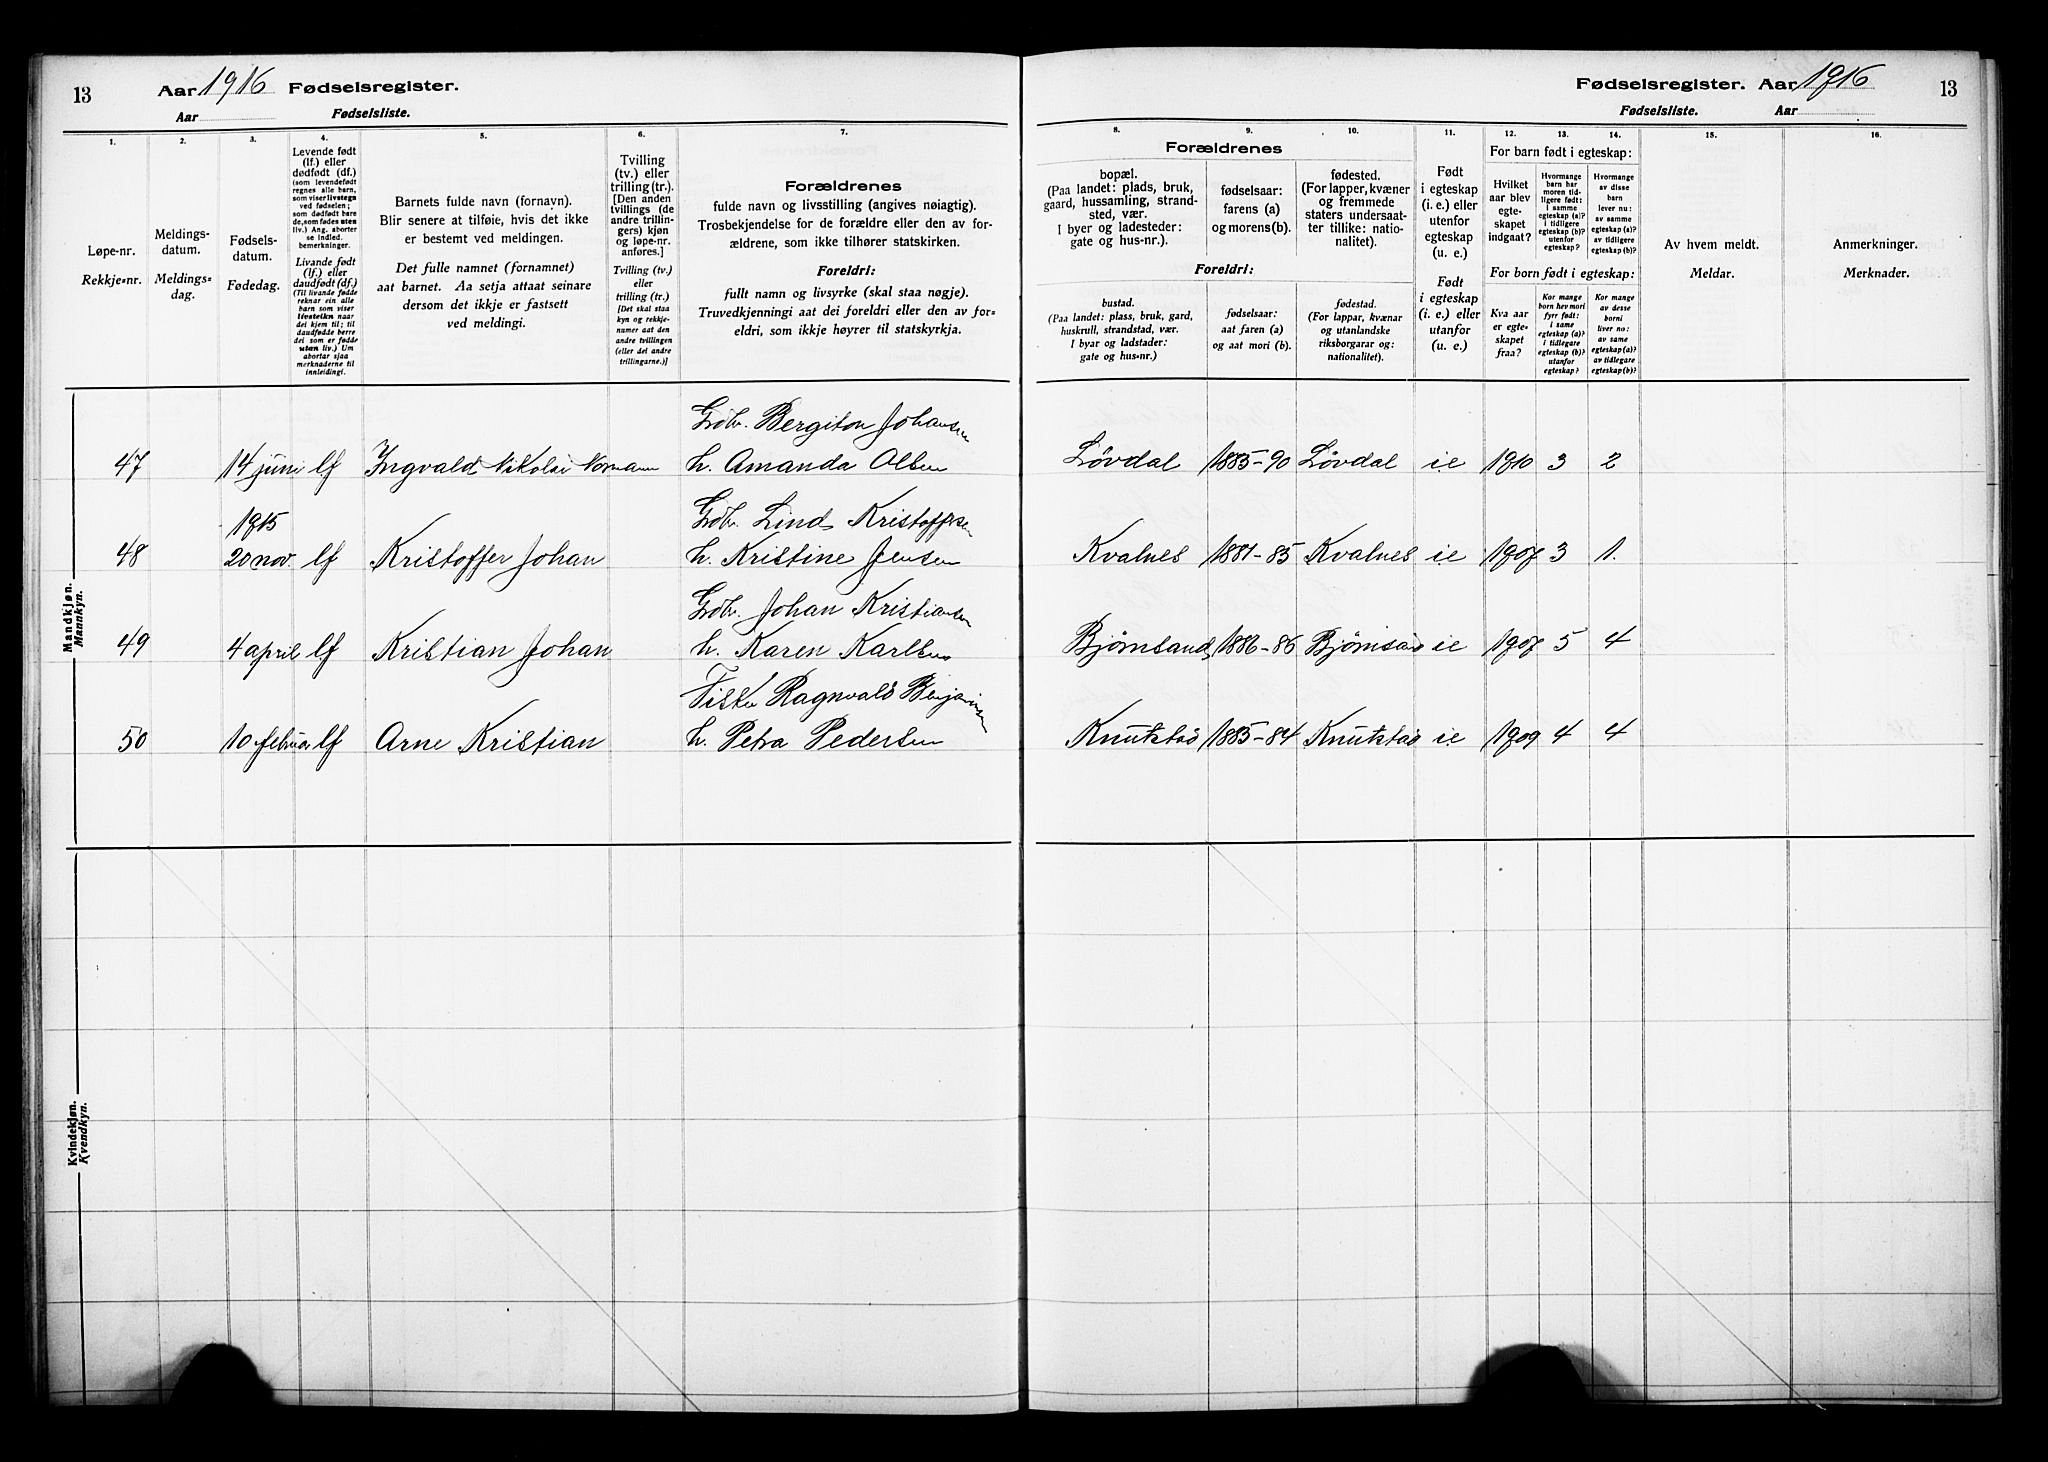 13 Aar 1916 Fødselsregister.
Aar Fødselsliste.
1. 2. 3. 4. 5. 6. 7.
Løpe-nr.
Rekkje-nr.
Meldings-
datum.
Meldings-
dag.
Fødsels-
datum.
Fødedag.
Levende født
(lf.) eller
dødfødt (df.)
(som levendefødt
regnes alle barn,
som viser livstegn
ved fødselen;
som dødfødt bare
de, som fødes uten
liv.) Ang. aborter
se indled.
bemerkninger.
Livande fødd
(lf.) eller
daudfødt (df.)
(Til livande fødde
reknar ein alle
barn som viser
livsteikn naar
dei kjem til; til
daudfødde berre
dei som er fødde
utan liv.) Um
abortar sjaa
merknaderne til
innleidingi.
Barnets fulde navn (fornavn).
Blir senere at tilføie, hvis det ikke
er bestemt ved meldingen.
Det fulle namnet (fornamnet)
aat barnet. Aa setja attaat seinare
dersom det ikkje er fastsett
ved meldingi.
Tvilling
(tv.) eller
trilling (tr.).
[Den anden
tvillings (de
andre trillin-
gers) kjøn
og løpe-nr.
anføres.]
Tvilling (tv.)
eller
trilling (tr.)
[Det skal staa
kyn og rekkje-
numer aat den
andre tvillingen
(eller dei andre
trillingarne.)]
Forældrenes
fulde navn og livsstilling (angives nøiagtig).
Trosbekjendelse for de forældre eller den av for-
ældrene, som ikke tilhører statskirken.
Foreldri:
fullt namn og livsyrke (skal staa nøgje).
Truvedkjenningi aat dei foreldri eller den av for-
eldri, som ikkje høyrer til statskyrkja.
Mandkjøn.
Mannkyn.
Gdbr. Bergiton Johansen
47 14 juni lf Ingvald Nikolai Normann h. Amanda Olsen
1915 Gdbr. Lind Kristoffersen
48 20 nov. lf Kristoffer Johan h. Kristine Jensen
Gdbr. Johan Kristiansen
49 4 april lf Kristian Johan h. Karen Karlsen
Fisker Ragnvald Benjaminsen
50 10 februar lf Arne Kristian h. Petra Pedersen
Kvindekjøn.
Kvendkyn.
Fødselsregister. Aar 1916 13
Fødselsliste. Aar
8. 9. 10. 11. 12. 13. 14. 15. 16.
Forældrenes
bopæl.
(Paa landet: plads, bruk,
gaard, hussamling, strand-
sted, vær.
I byer og ladesteder:
gate og hus-nr.).
fødselsaar:
farens (a)
og morens (b).
fødested.
(For lapper, kvæner
og fremmede
staters undersaat-
ter tillike: natio-
nalitet).
Foreldri:
bustad.
(Paa landet: plass, bruk, gard,
huskrull, strandstad, vær.
I byar og ladstader:
gate og hus-nr.)
fødselsaar:
aat faren (a)
og aat mori (b).
fødestad.
(For lappar, kvænar
og utanlandske
riksborgarar og:
nationalitet).
Født
i egteskap
(i. e.) eller
utenfor
egteskap
(u. e.)
Født
i egteskap
(i. e.) eller
utanfor
(u. e.)
For barn født i egteskap:
Hvilket
aar blev
egte-
skapet
indgaat?
Hvormange
barn har
moren tid-
ligere født:
i samme
egteskap (a)?
i tidligere
egteskap (b)?
utenfor
egteskap?
Hvormange
av disse
barn
lever nu:
av samme
egteskap (a)?
av tidligere
egteskap (b)?
For born født i egteskap:
Kva aar
er egte-
skapet
fraa?
Kor mange
born hev mori
fyrr født:
i same
egteskap (a)?
i tidlegare
egteskap (b)?
utanfor
egteskap?
Kor mange
av desse
borni
liver no:
av same
egteskap (a)?
av tidlegare
egteskap (b)?
Av hvem meldt.
Meldar.
Anmerkninger.
Merknader.
Løvdal 1885-90 Løvdal i.e 1910 3 2
Kvalnes 1881-85 Kvalnes i.e 1907 3 1.
Bjørnsand 1886-86 i.e 1907 5 4
1885-84 i.e 1909 4 4